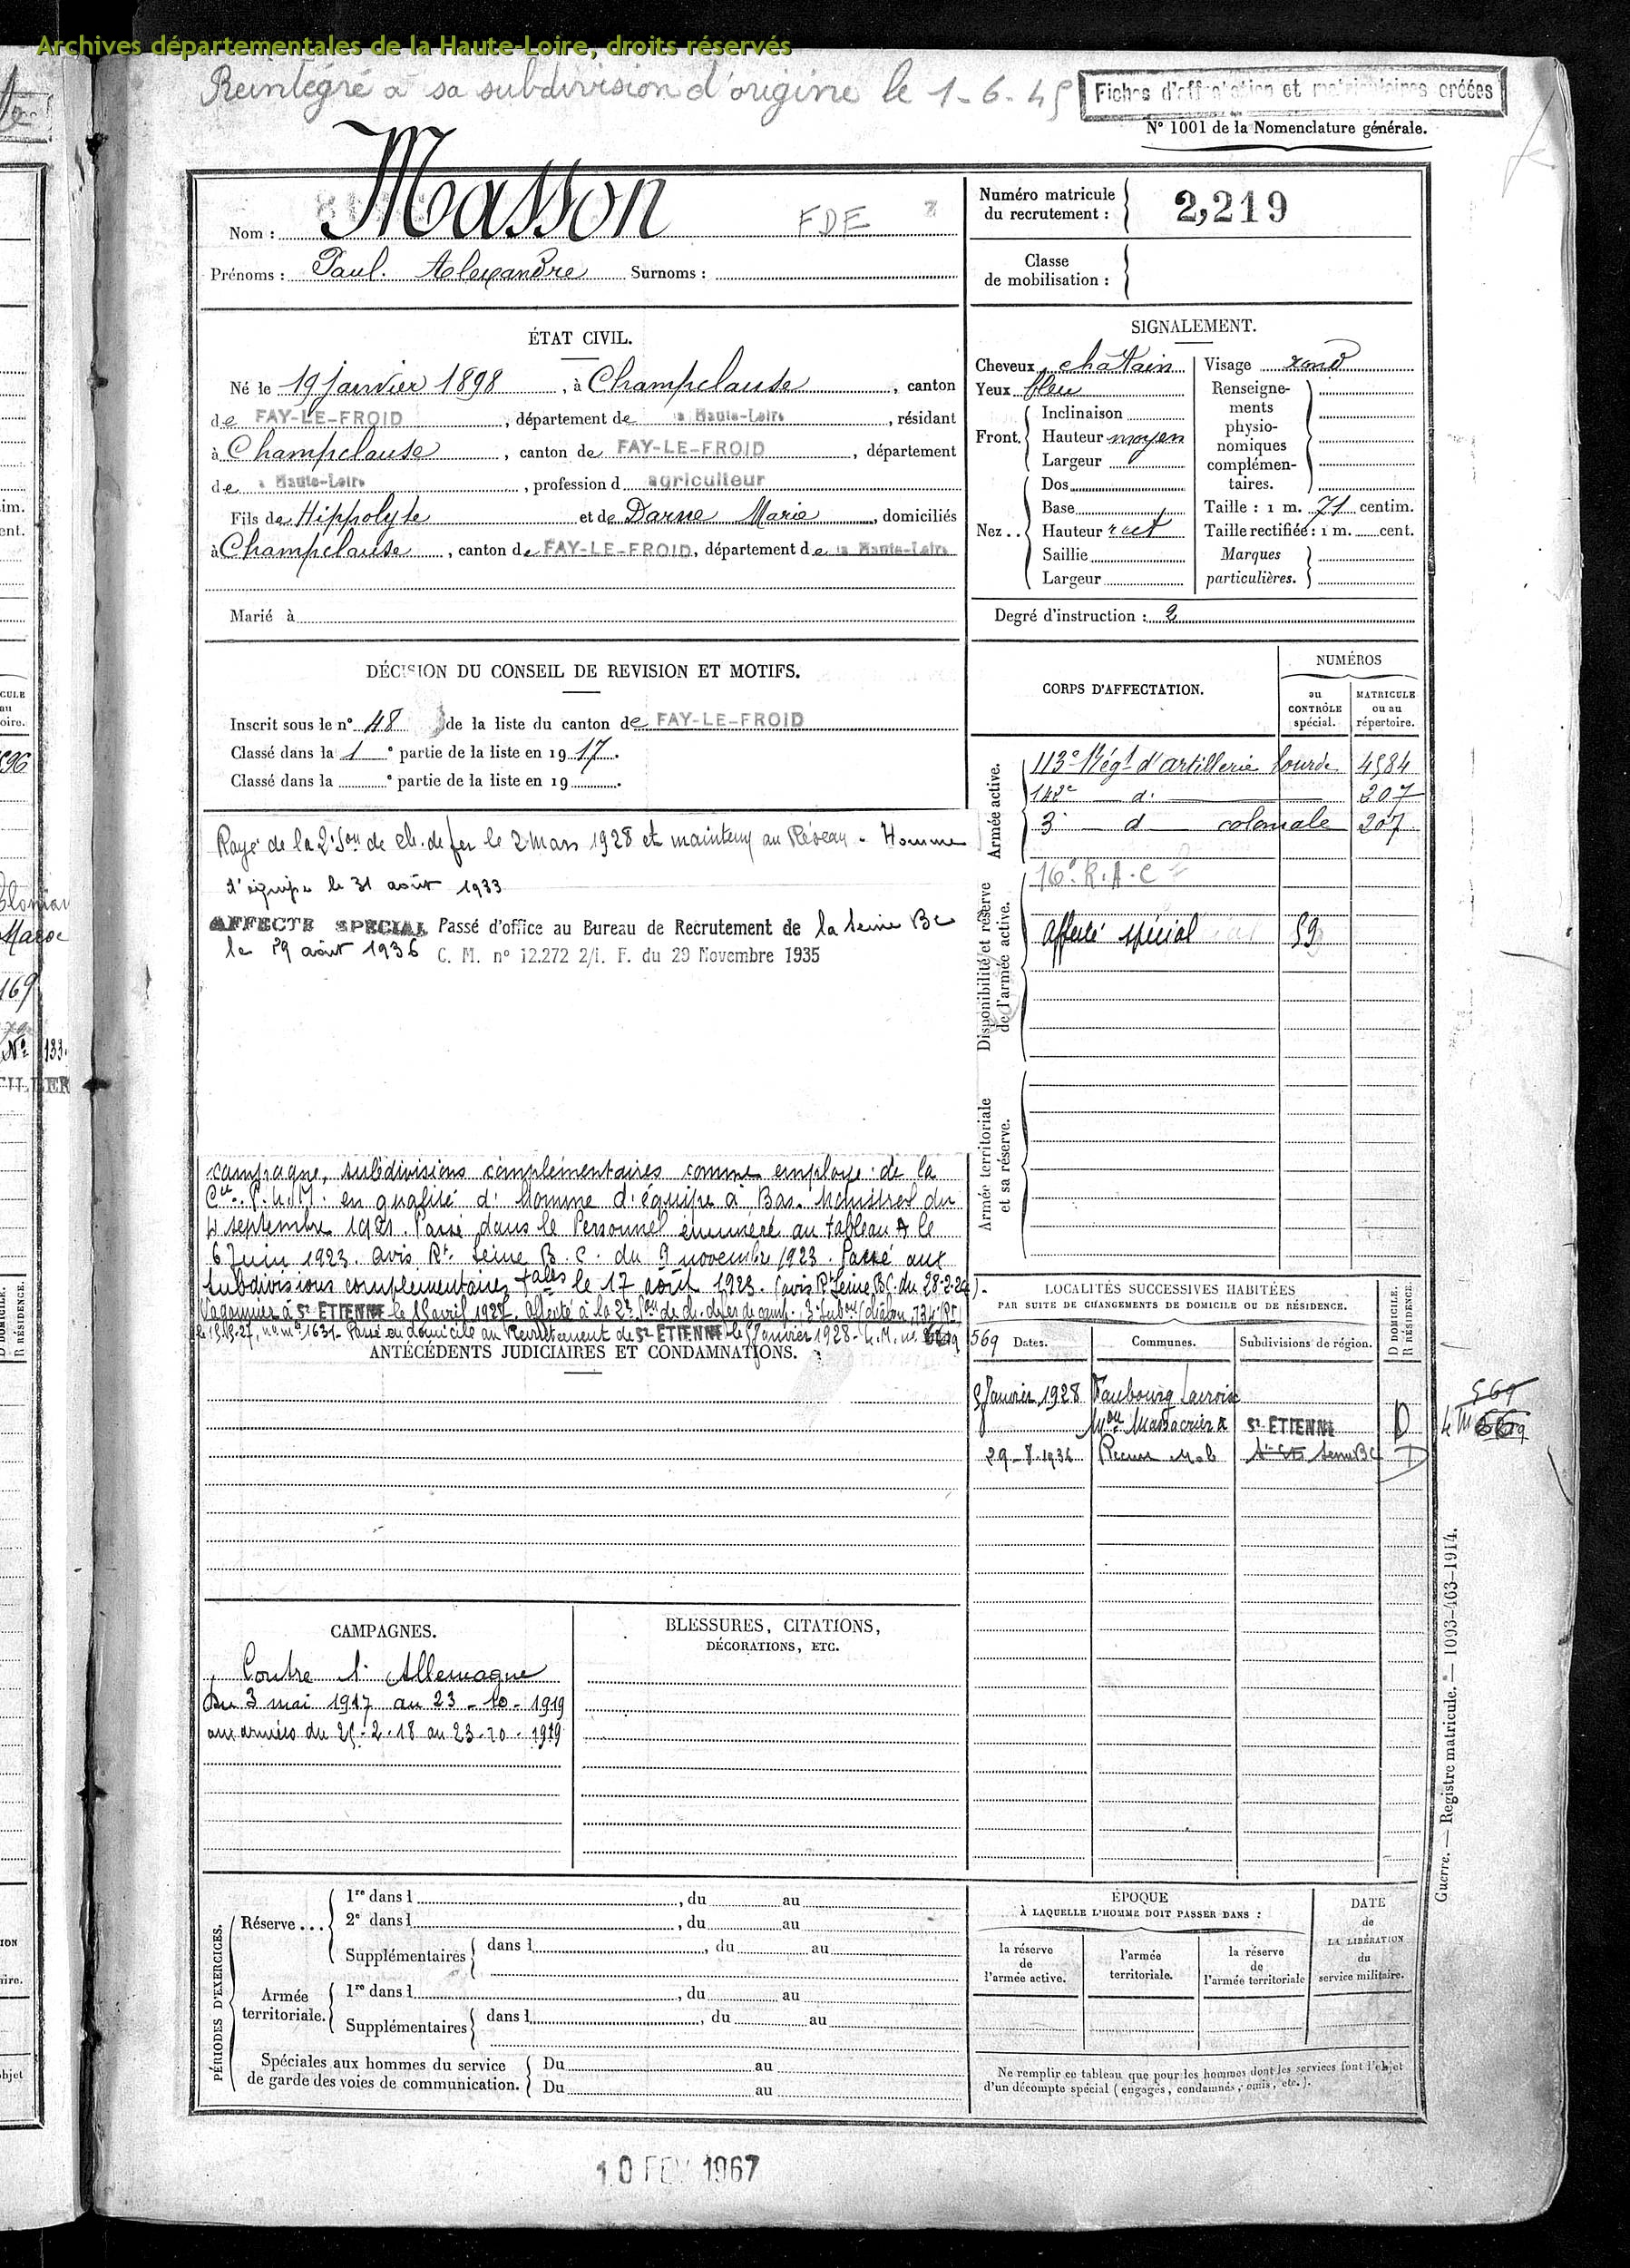 Archives départementales de la Haute-Loire, droits réservés
Réintégré à sa subdivision d'origine le 1-6-45
Fiches d'affectation et matriculaires créées
N° 1001 de la Nomenclature générale.
Nom : Masson FDE
Prénoms : Paul. Alexandre Surnoms :
Numéro matricule du recrutement : 2,219
Classe de mobilisation :
ÉTAT CIVIL.
Né le 19 janvier 1898, à Champclause, canton
de FAY-LE-FROID, département de la Haute-Loire, résidant
à Champclause, canton de FAY-LE-FROID, département
de la Haute-Loire, profession d agriculteur
Fils de Hippolyte et de Darne Marie, domiciliés
à Champclause, canton de FAY-LE-FROID, département de la Haute-Loire
Marié à
SIGNALEMENT.
Cheveux châtain
Yeux bleu
Front. Inclinaison
Hauteur moyen
Largeur
Nez.. Dos
Base
Hauteur rect
Saillie
Largeur
Visage rond
Renseignements physionomiques complémentaires.
Taille : 1 m. 71 centim.
Taille rectifiée : 1 m. cent.
Marques particulières.
Degré d'instruction : 2
DÉCISION DU CONSEIL DE REVISION ET MOTIFS.
Inscrit sous le n° 48 de la liste du canton de FAY-LE-FROID
Classé dans la 1e partie de la liste en 1917.
Classé dans la e partie de la liste en 19 .
Rayé de la 2e Son de ch. de fer le 2 Mars 1928 et maintenu au Réseau - Homme
d'équipe le 31 août 1933
AFFECTÉ SPECIAL Passé d'office au Bureau de Recrutement de la Seine BC
le 29 août 1936 C. M. n° 12.272 2/I. F. du 29 Novembre 1935
CORPS D'AFFECTATION.
NUMÉROS
au CONTRÔLE spécial.
MATRICULE ou au répertoire.
Armée active.
113e Régt d'artillerie lourde 4584
142e d° 207
3e d° coloniale 207
Disponibilité et réserve de l'armée active.
16e R.A.C
Affecté spécial 59
Armée territoriale et sa réserve.
campagne, subdivisions complémentaires comme employé de la
Cie P.L.M. en qualité d'Homme d'équipe à Bas-Monistrol du
4 septembre 1921. Passé dans le Personnel énuméré au tableau A le
6 Juin 1923. avis Rt. Seine B.C. du 9 novembre 1923. Passé aux
subdivisions complementaires tales le 17 août 1923. (avis Rt Seine BC. du 28-2-24).
Wagonnier à St ETIENNE le 1 avril 1927. Affecté à la 2e Son de ch. de fer de camp.
Passé en domicile au Recrutement de St ETIENNE le 9 Janvier 1928
569
ANTÉCÉDENTS JUDICIAIRES ET CONDAMNATIONS.
LOCALITÉS SUCCESSIVES HABITÉES
PAR SUITE DE CHANGEMENTS DE DOMICILE OU DE RÉSIDENCE.
Dates. Communes. Subdivisions de région. D DOMICILE. R RÉSIDENCE.
9 Janvier 1928 Faubourg Lacroix
Mon Massacrier St ETIENNE D
29-8-1936 Seine BC D
569
CAMPAGNES.
Contre l'Allemagne
Du 3 mai 1917 au 23-10-1919
aux armées du 25-2-18 au 23-10-1919
BLESSURES, CITATIONS,
DÉCORATIONS, ETC.
Guerre. — Registre matricule. — 1093-463-1914.
PÉRIODES D'EXERCICES.
Réserve...
1re dans l , du au
2e dans l , du au
Supplémentaires dans l , du au
Armée territoriale.
1re dans l , du au
Supplémentaires dans l , du au
Spéciales aux hommes du service de garde des voies de communication.
Du au
Du au
ÉPOQUE
À LAQUELLE L'HOMME DOIT PASSER DANS :
la réserve de l'armée active.
l'armée territoriale.
la réserve de l'armée territoriale
DATE de LA LIBÉRATION du service militaire.
Ne remplir ce tableau que pour les hommes dont les services font l'objet
d'un décompte spécial (engagés, condamnés, omis, etc.).
10 FEV 1967